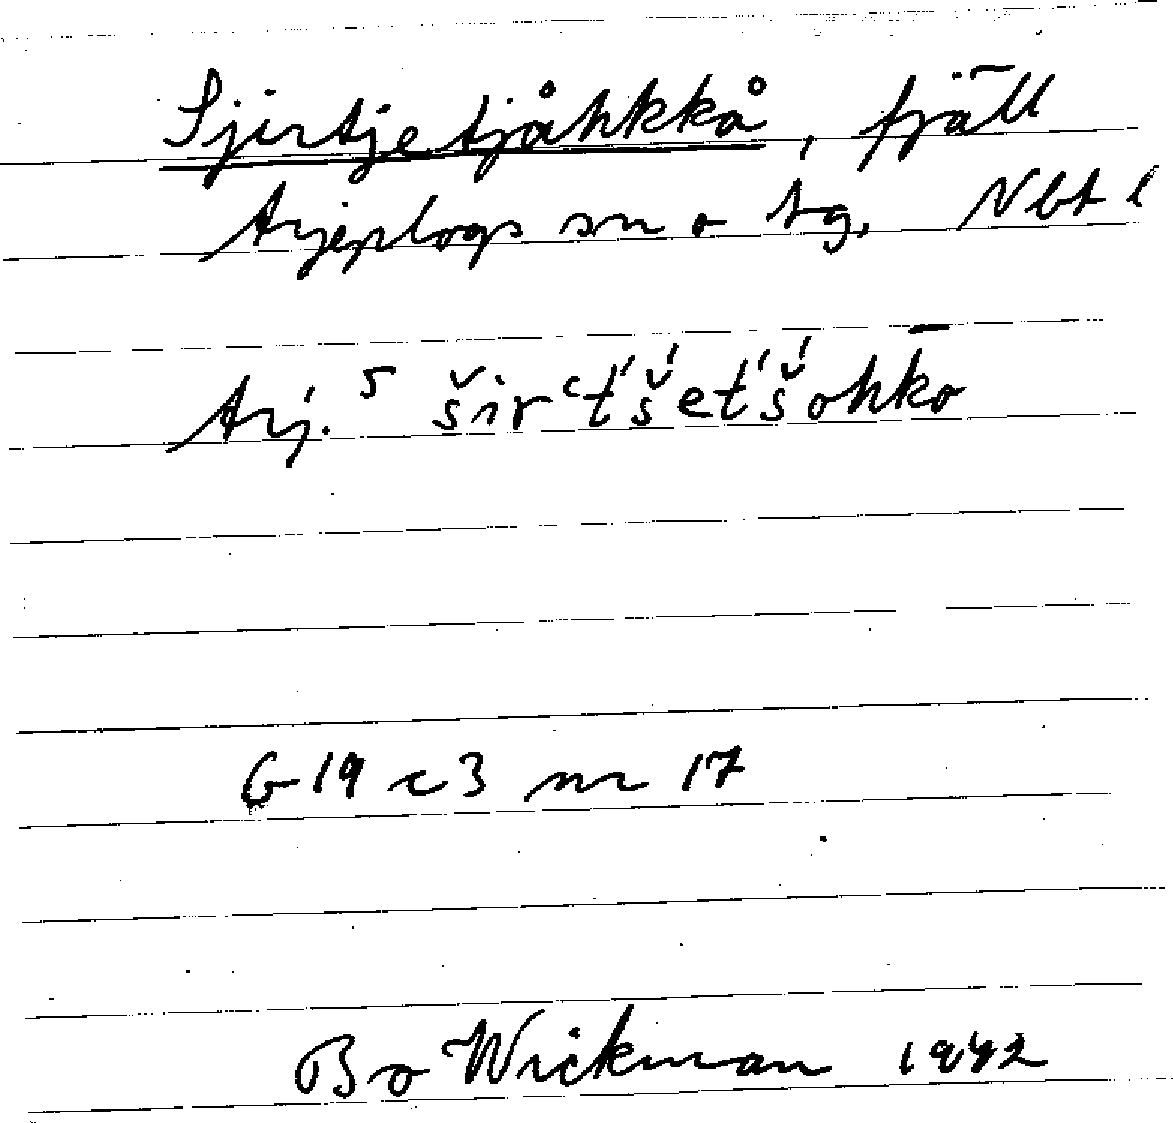 Sjirtjetjåhkkå, fjäll
Arjeplogs sn o tg. Nbt l
Arj. 5 širʿt́š́et́š́ohkō
G 19 c 3 nr 17
Bo Wickman 1942